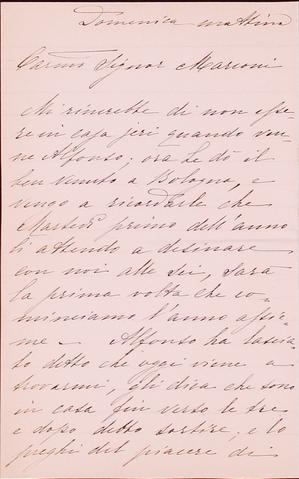 Domenica mattina
Carmo Signor Marconi
Mi rincrebbe di non esse-
re in casa jeri quando ven-
ne Alfonso; ora Le dò il
ben venuto a Bologna, e
vengo a ricordarle che
Martedì primo dell'anno
li attendo a desinare
con noi alle sei, sarà
la prima volta che co-
minciamo l'anno assie-
me — Alfonso ha lascia-
to detto che oggi viene a
trovarmi, gli dica che sono
in casa fin verso le tre
e dopo detto sortire, e lo
preghi del piacere di